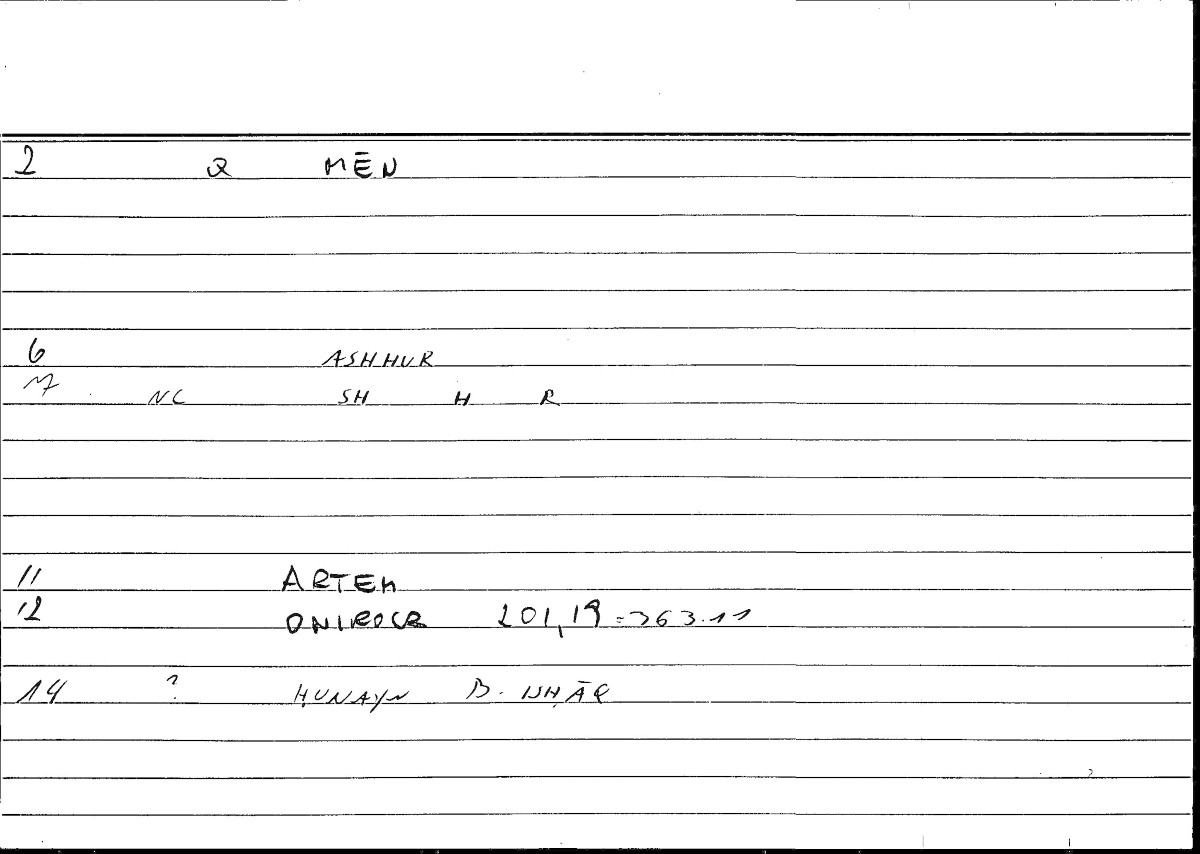 2 Q MĒN
6 ASHHUR
7 NC SH H R
11 ARTEM
12 ONIROCR 201,19=363.11
14 ? ḤUNAYN B. ISḤĀQ